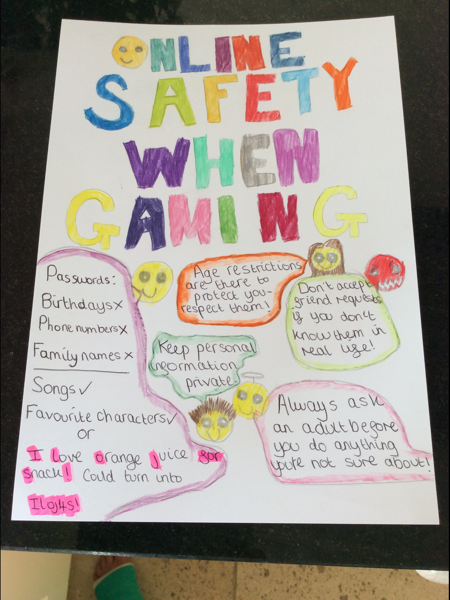 ONLINE
SAFETY
WHEN
GAMING
Passwords:
Birthdays x
Phone numbers x
Family names x
Songs ✓
Favourite characters ✓
or
I love orange juice for
snack! Could turn into
Iloj4s!
Age restrictions
are there to
protect you-
respect them!
Keep personal
information
private.
Don't accept
friend requests
if you don't
know them in
real life!
Always ask
an adult before
you do anything
you're not sure about!